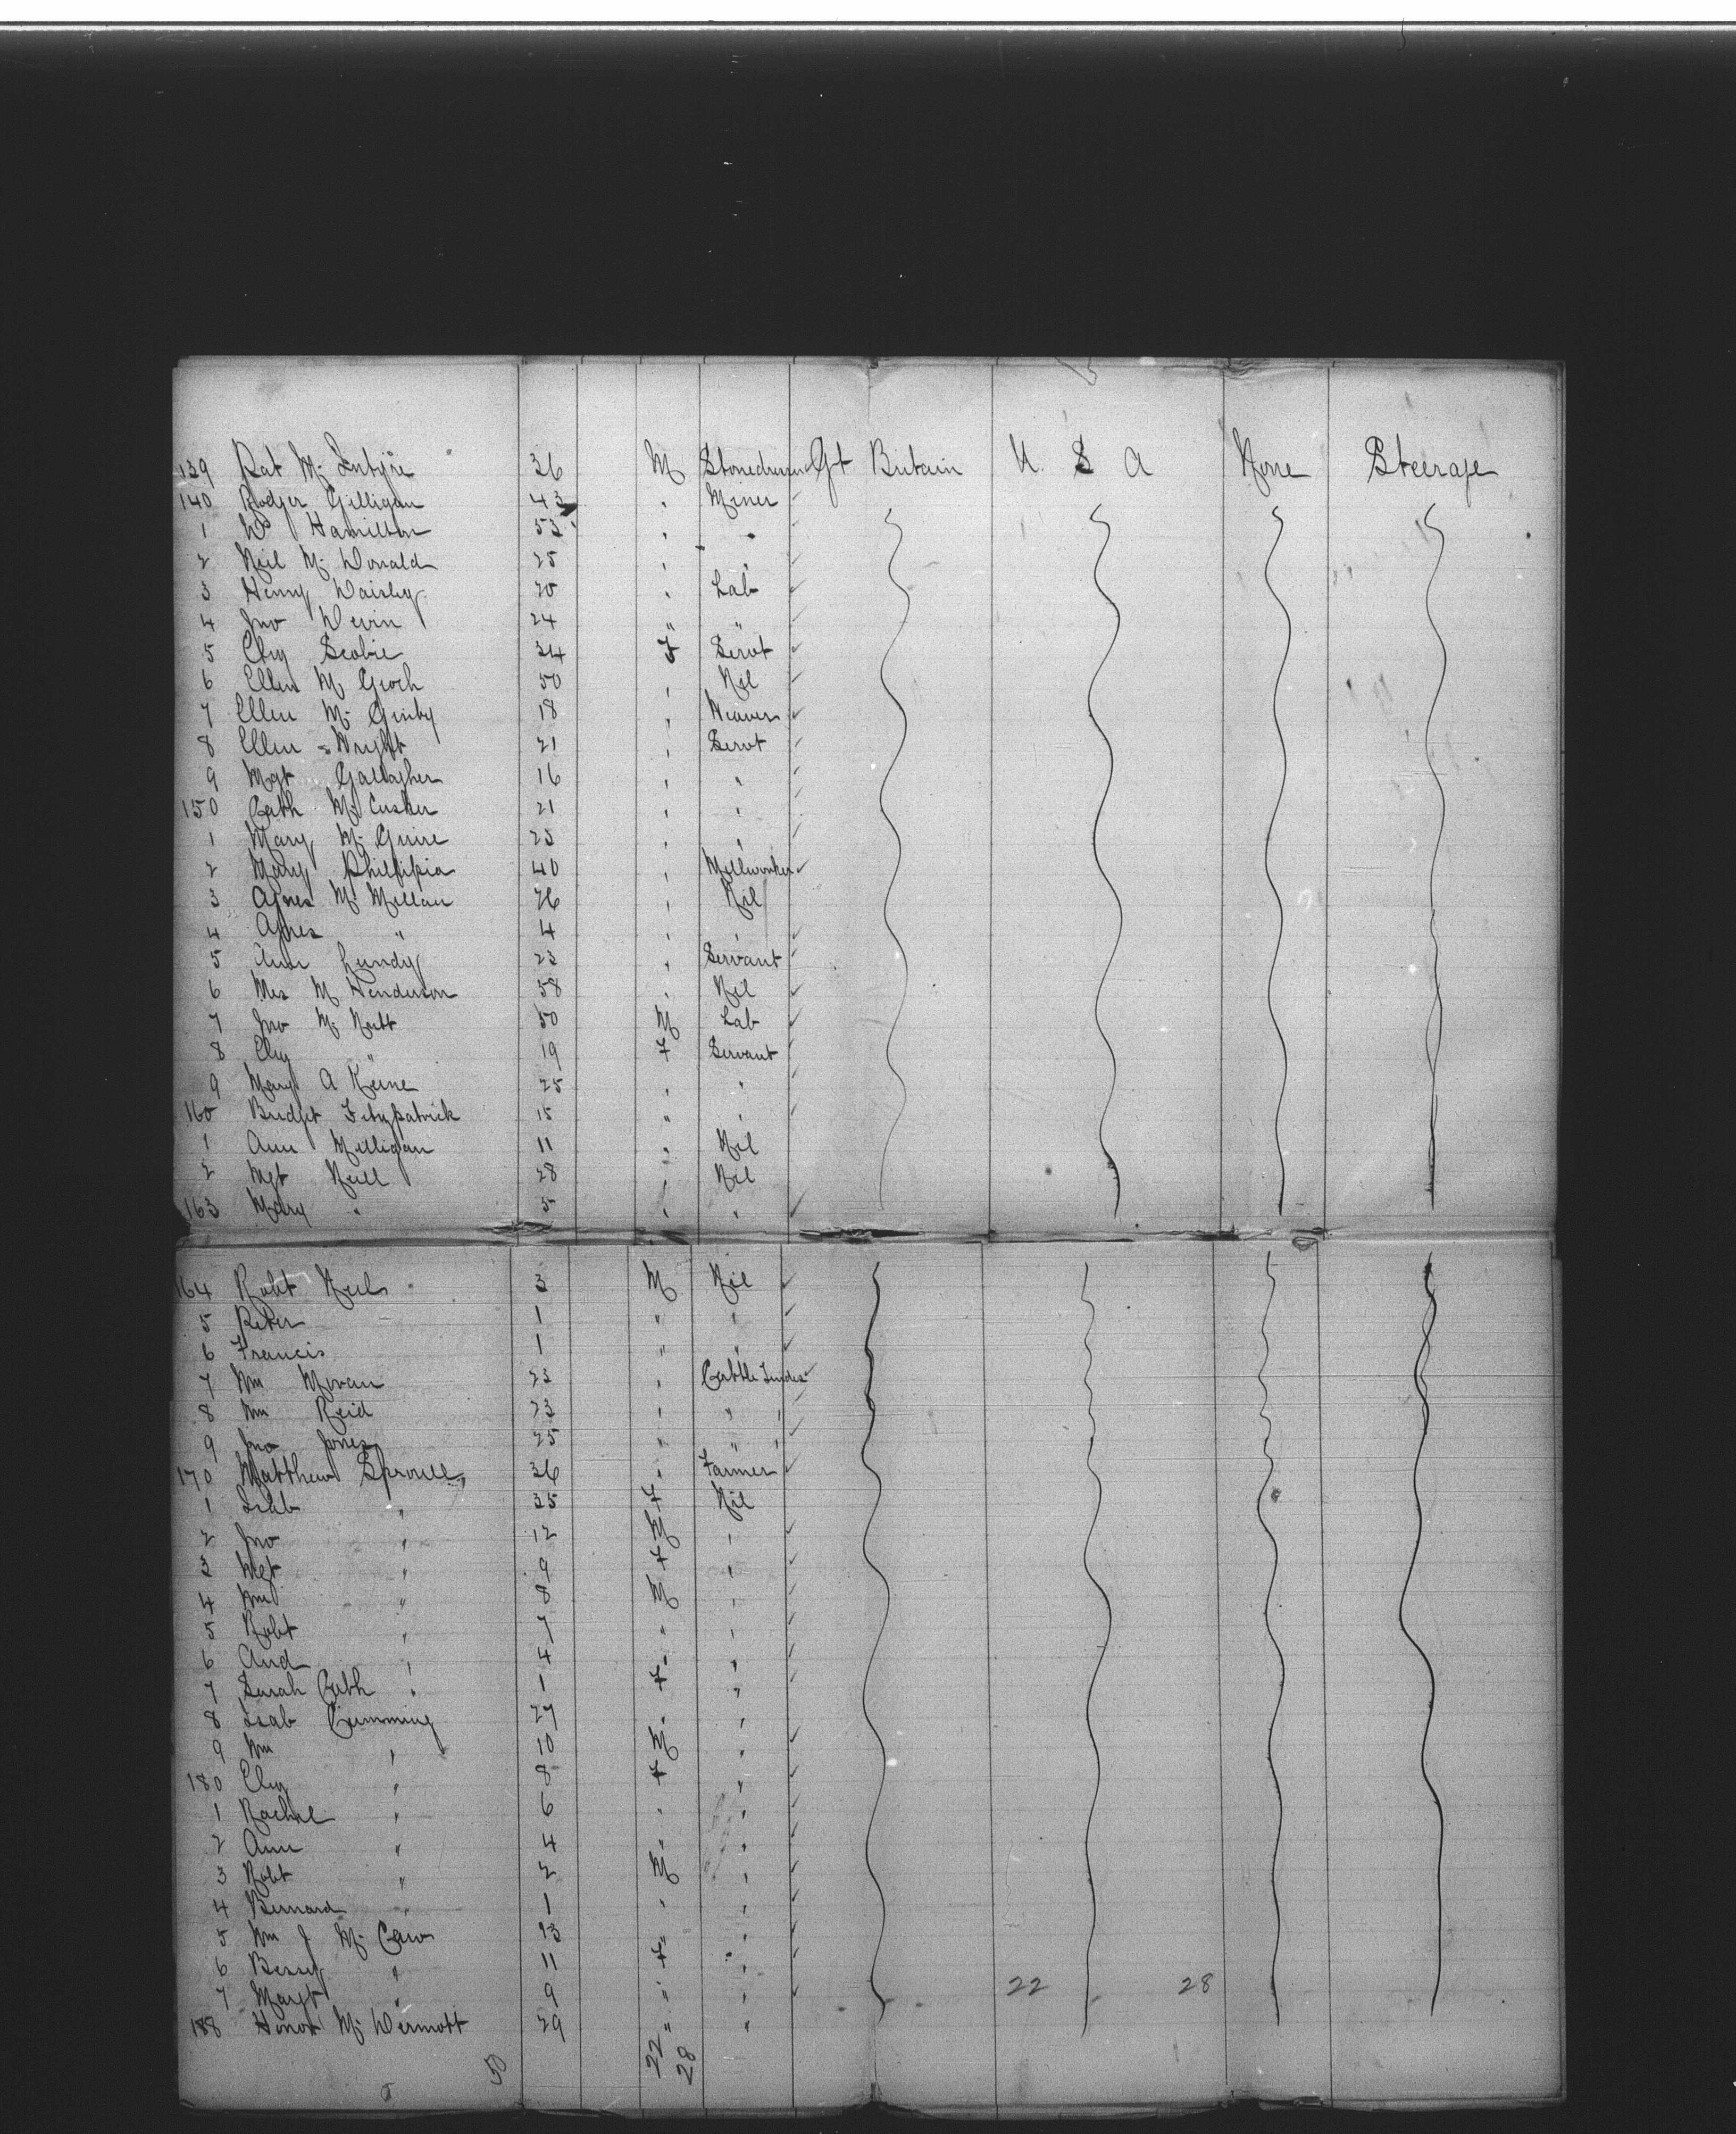 139 Pat Mc Intyre 36 M Stonedresser Gt Britain U. S A None Steerage
140 Rodger Gilligan 43 " Miner
1 Wm Hamilton 53 " "
2 Neil Mc Donald 25 " "
3 Henry Daisley 20 " Lab
4 Jno Devin 24 " "
5 Eliz Scobie 34 F Servt
6 Ellen Mc Geoch 50 " Nil
7 Ellen Mc Ginty 18 " Weaver
8 Ellen Wright 21 " Servt
9 Mgt Gallagher 16 " "
150 Cath Mc Cusker 21 " "
1 Mary Mc Guire 25 " "
2 Mary Phillipia 40 " Millworker
3 Agnes Mc Millan 26 " Nil
4 Agnes " 4 " "
5 Ann Lundy 23 " Servant
6 Mrs M Henderson 58 " Nil
7 Jno Mc Nutt 50 M Lab
8 Eliz " 19 F Servant
9 Mary A Keene 25 " "
160 Bridget Fitzpatrick 15 " "
1 Ann Milligan 11 " Nil
2 Mgt Neill 28 " Nil
163 Mary " 5 " "
164 Robt Neil 3 M Nil
5 Peter 1 " "
6 Francis 1 " "
7 Wm Moran 23 " Cattle Tender
8 Wm Reid 23 " "
9 Jno Jones 25 " "
170 Matthew Sproull 36 " Farmer
1 Isab " 35 F Nil
2 Jno " 12 M "
3 Mgt " 9 F "
4 Wm " 8 M "
5 Robt " 7 " "
6 And " 4 " "
7 Sarah Cath " 1 F "
8 Isab Cumming 27 " "
9 Wm " 10 M "
180 Eliz " 8 F "
1 Rachel " 6 " "
2 Ann " 4 " "
3 Robt " 2 M "
4 Bernard " 1 " "
5 Wm J Mc Caw 13 " "
6 Bessy " 11 F "
7 Margt " 9 " " 22 28
188 Honor Mc Dermott 29 " "
50 22 28